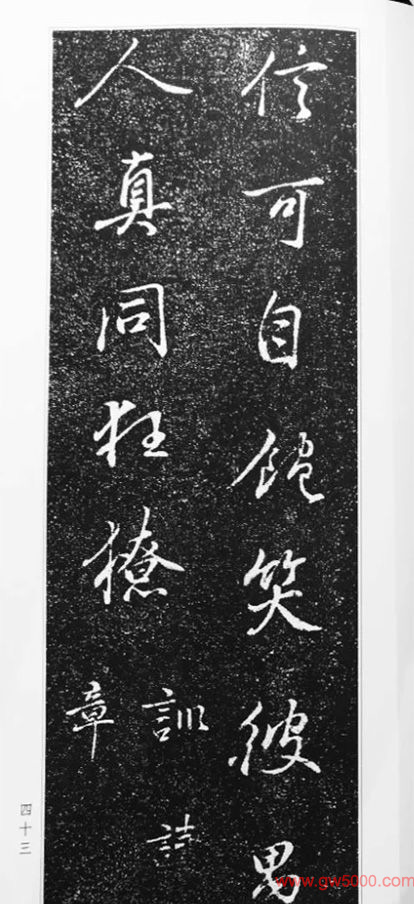 信可自飽笑彼
人真同狂獠
訓詁
章
四十三
www.gw5000.com